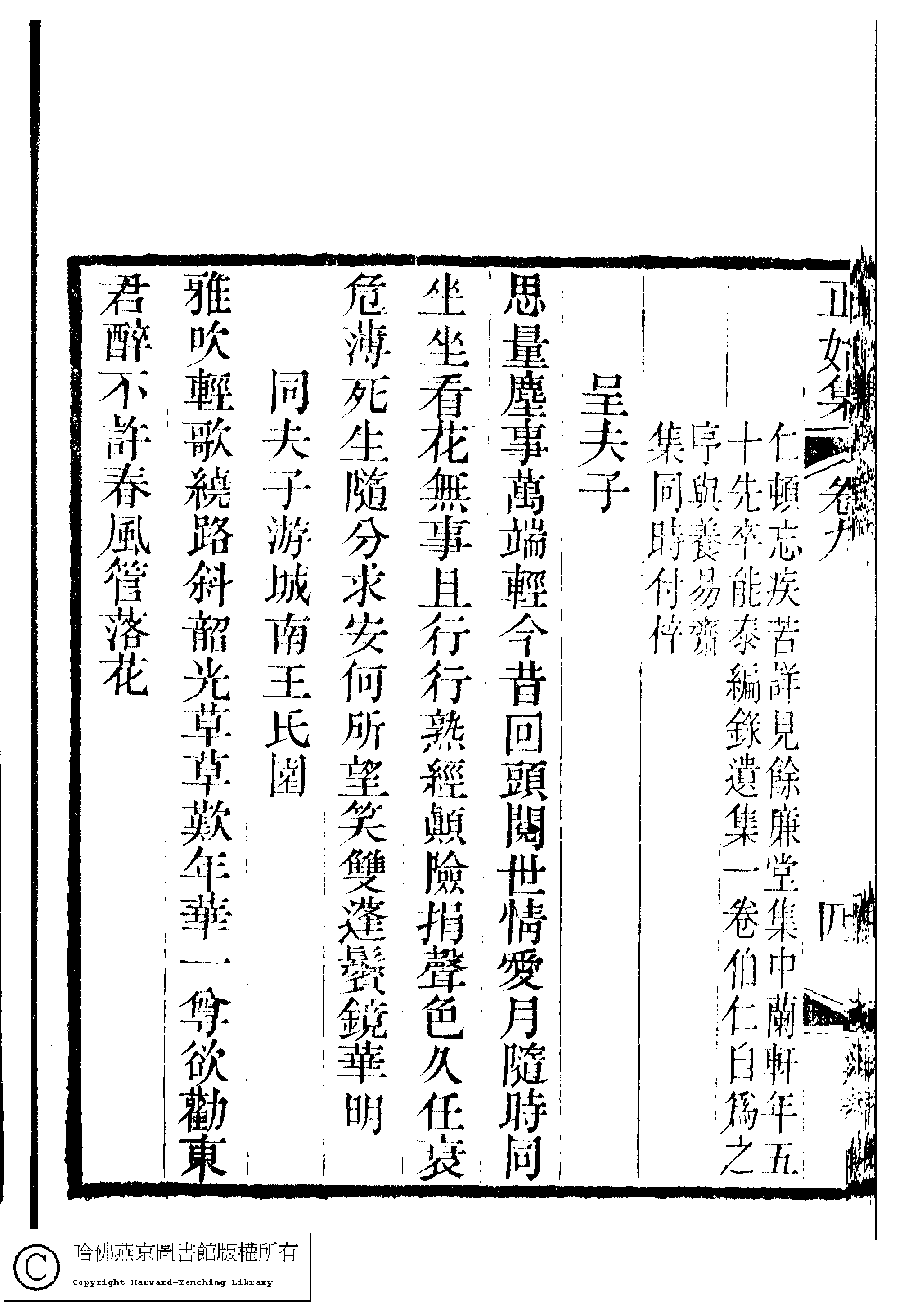 正始集 卷九 四
仁頓忘疾苦詳見餘廉堂集中蘭軒年五
十先卒能泰編錄遺集一卷伯仁自為之
序與養易齋
集同時付梓
呈夫子
思量塵事萬端輕今昔回頭閱世情愛月隨時同
坐坐看花無事且行行熟經顛險捐聲色久任衰
危薄死生隨分求安何所望笑雙蓬鬢鏡華明
同夫子游城南王氏園
雅吹輕歌繞路斜韶光草草歎年華一尊欲勸東
君醉不許春風管落花
哈佛燕京圖書館版權所有
Copyright Harvard-Yenching Library